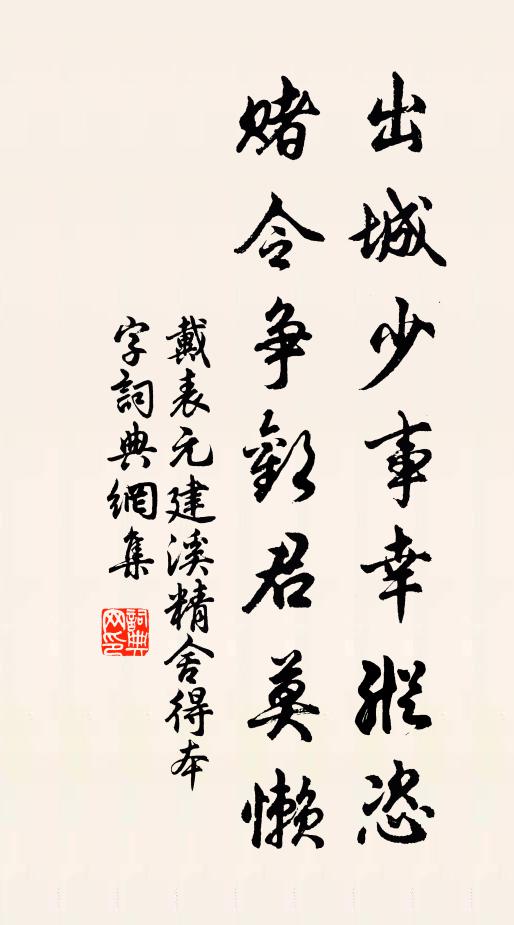 出城少事幸縱恣
賭令争歡君莫懶
戴表元建溪精舍得本
字詞典網集
詞典
网印